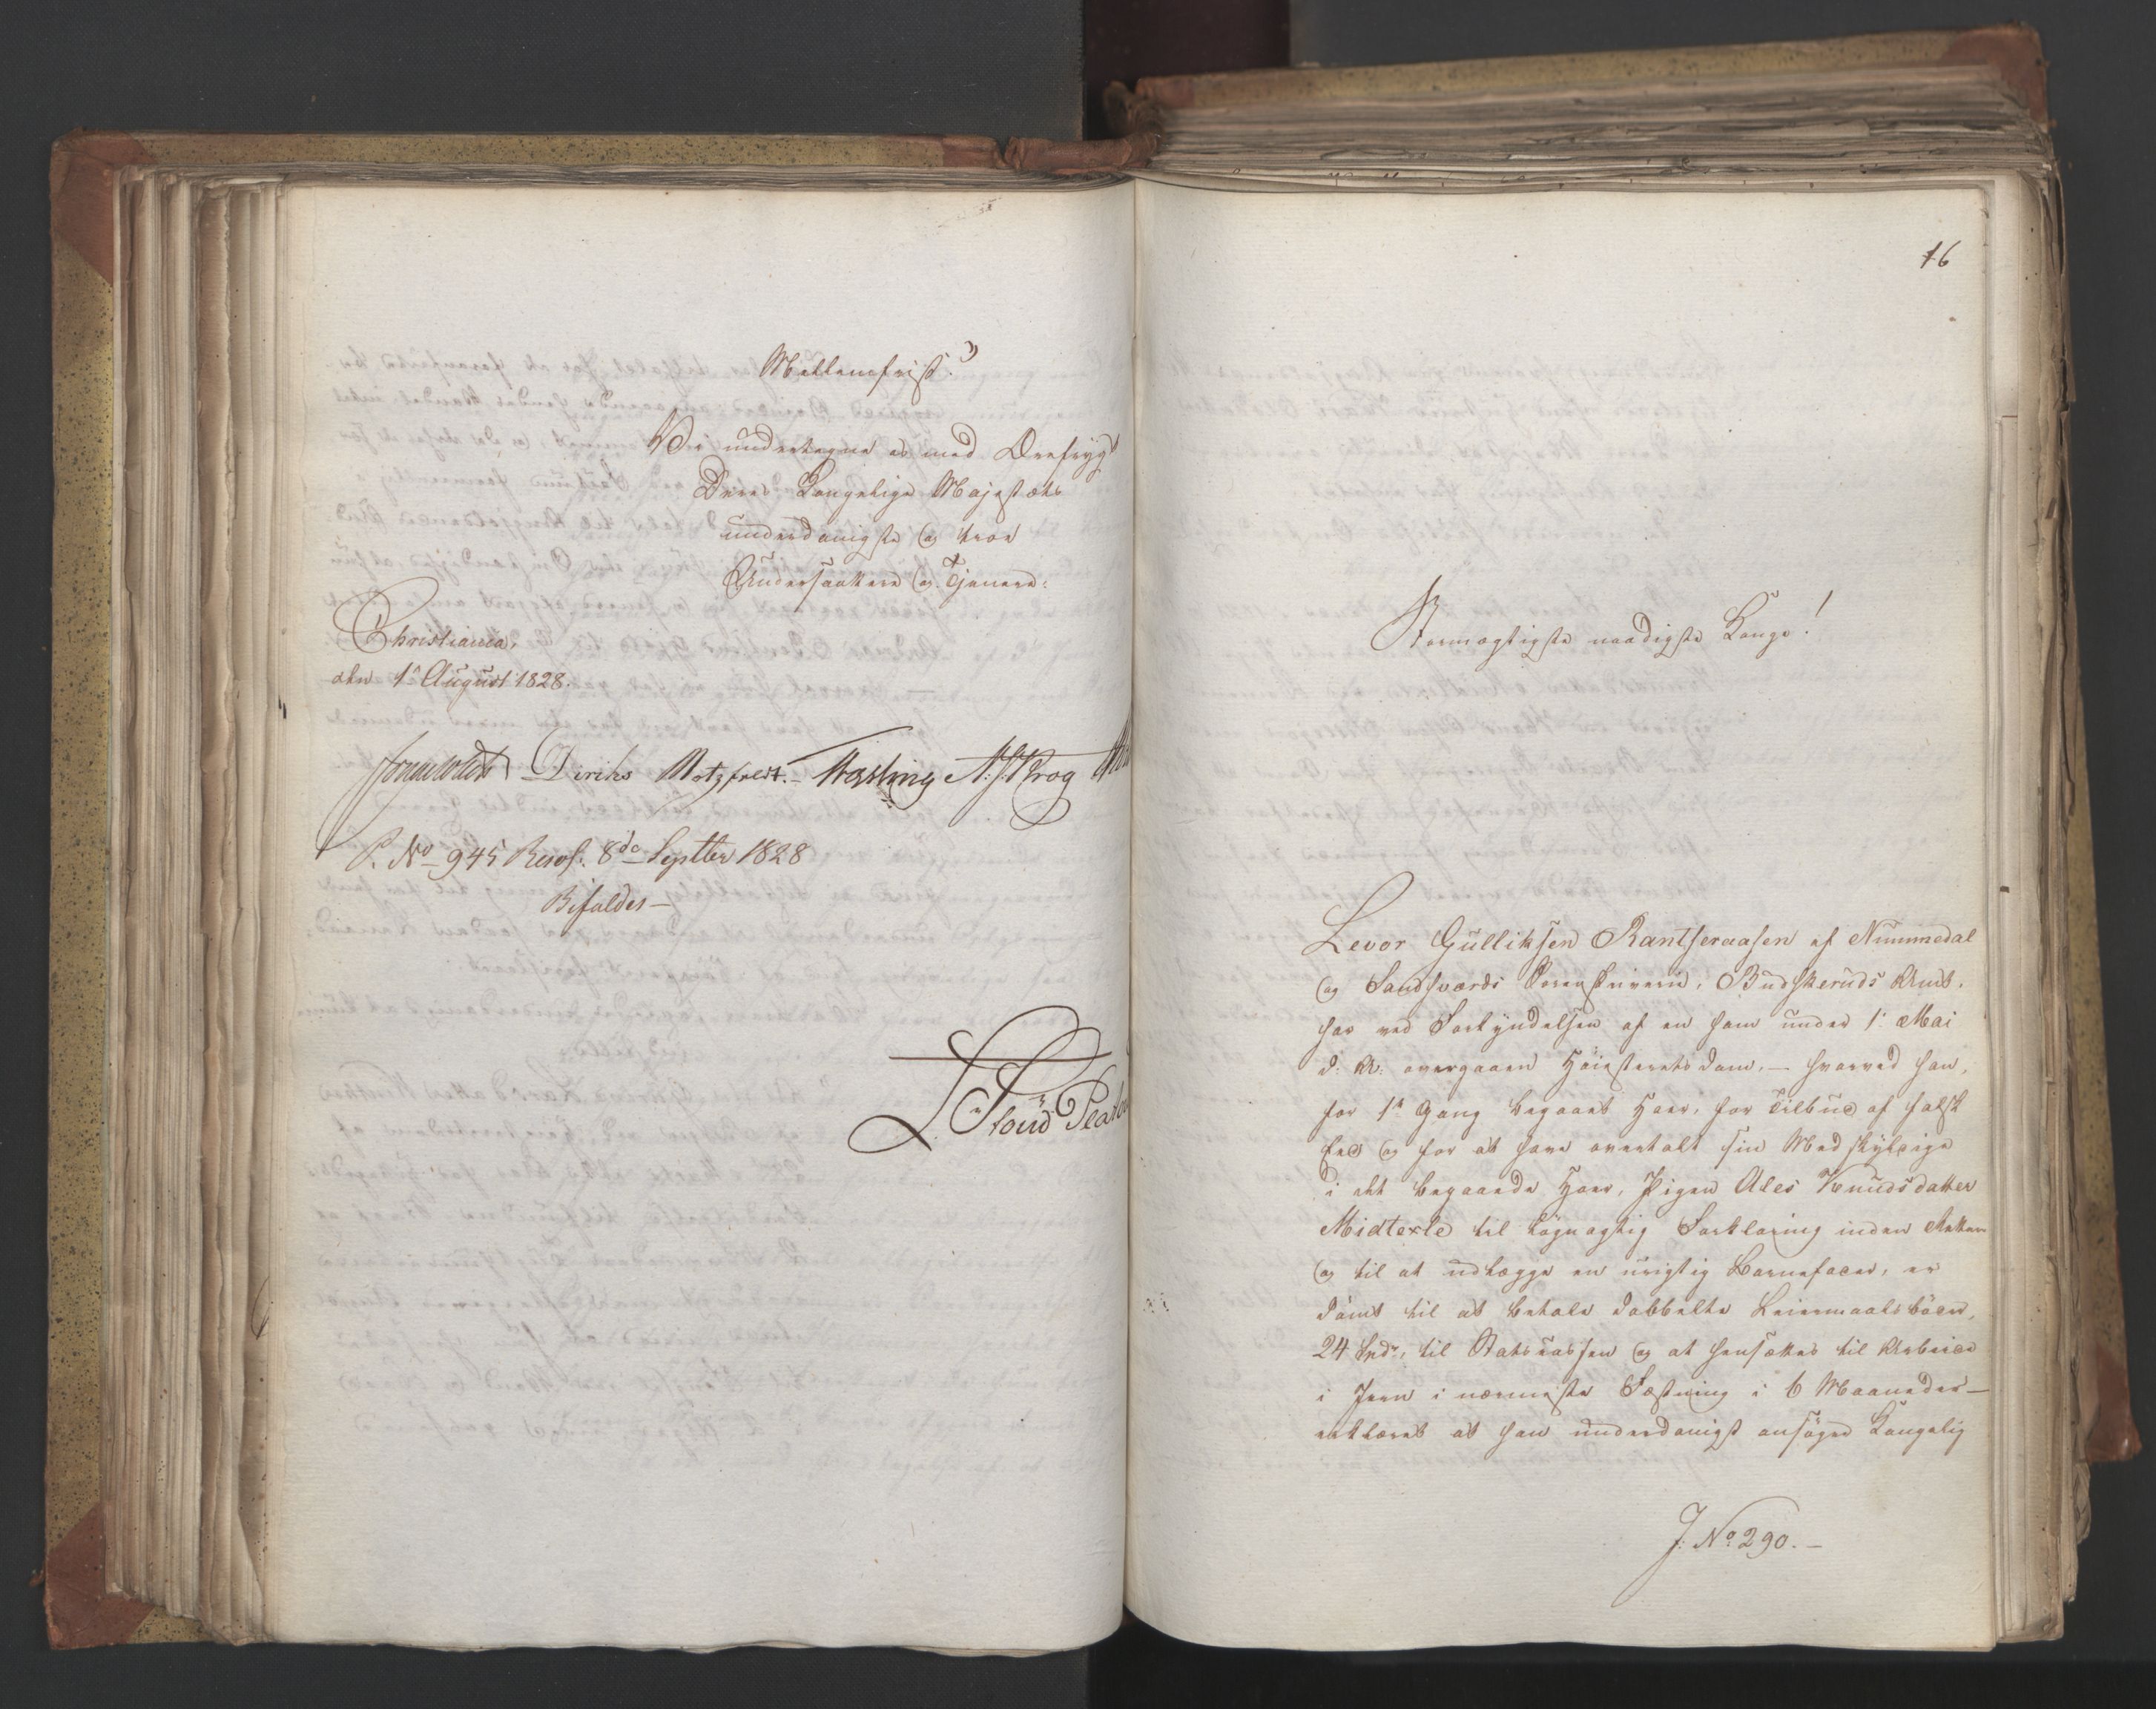 Mellemfrist.
Vi undertegne os med Ærefrygt
Deres Kongelige Majestæts
underdanigste og troe
Undersaattere og Tjenere:
Christiania,
den 1 August 1828.
Diriks Motzfeldt.
P. No 945 Resol. 8de Septber 1828
Bifaldes —
16
Stormægtigste naadigste Konge!
Levor Gulliksen Rantseraasen af Nummedal
og Sandsværds Sorenskriverie, Budskeruds Amt,
har ved Forkyndelsen af en ham under 1: Mai
d: A: overgaaen Höiesteretsdom, — hvorved han,
for 1ste Gang begaaet Hoer, for Tilbud af falsk
Eed og for at have overtalt sin Medskyldige
i det begaaede Hoer, Pigen Ales Knudsdatter
Midtexle til lögnagtig Forklaring inden Retten
og til at udlægge en urigtig Barnefader, er
dömt til at betale dobbelte Leiermaalsböder,
24 Spd, til Statskassen og at hensættes til Arbeide
i Jern i nærmeste Fæstning i 6 Maaneder —
erklæret at han underdanigst ansöger Kongelig
J. No 290. —